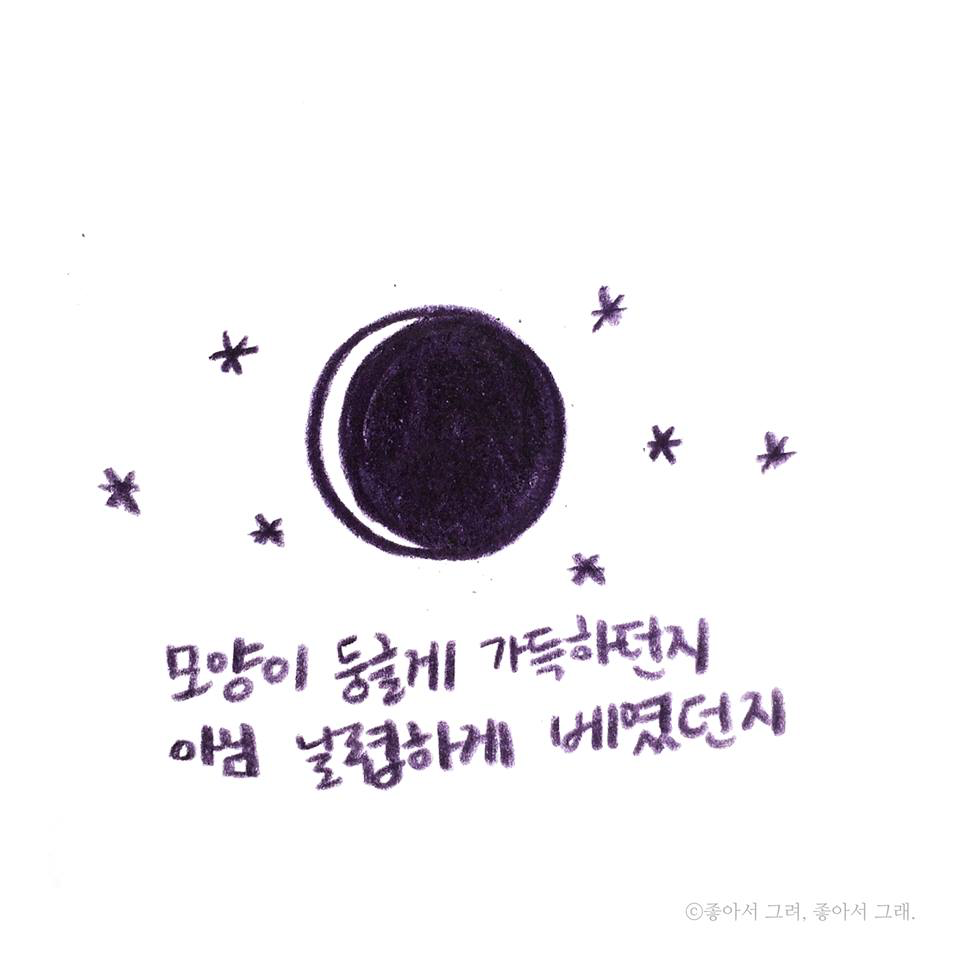 모양이 둥글게 가득하던지
아님 날렵하게 베였던지
ⓒ좋아서 그려, 좋아서 그래.